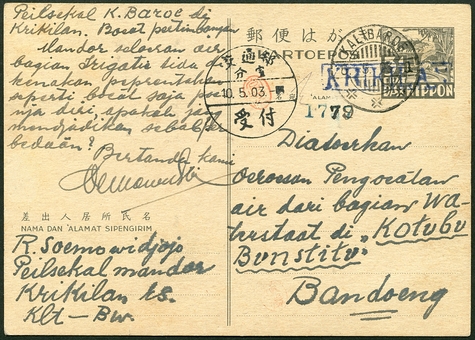 Peilsekal K. Baroe di
Krikilan. Boeat pertimbangan
Mandor saloeran air
bagian Irigatie bisa di
kenakan peprentahan
seperti boeat saja poe-
nja diri, apakah jang
mendjadikan sebab per-
bedaan?
Bertanda kami
差出人居所氏名
NAMA DAN ALAMAT SIPENGIRIM
R. Soemowidjojo
Peilsekal mandor
Krikilan ts.
Klt-Bw.
郵便はが
KARTOEPO
KALIBAROE
NIPPON
交通部
分室
10.5.03
受付
1779
Diatoerkan
Oeroesan Pengoeatan
air dari bagian Wa-
terstaat di "Kotubu
Bunstitu"
Bandoeng